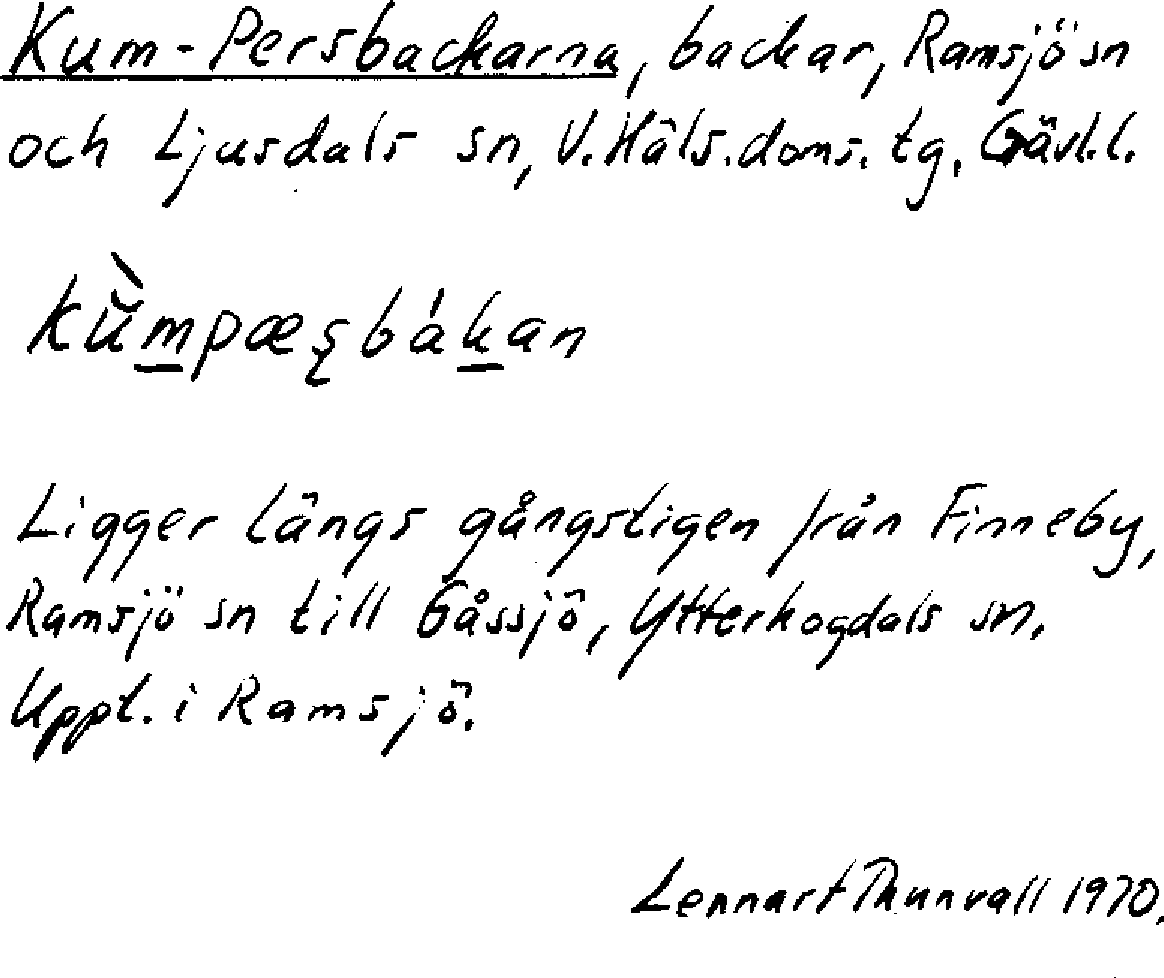 Kum-Persbackarna, backar, Ramsjö sn
och Ljusdals sn, V. Häls. doms. tg, Gävl.l.
kù̆m̲pæʂbák̲an
Ligger längs gångstigen från Finneby,
Ramsjö sn till Gåssjö, Ytterhogdals sn.
Uppt. i Ramsjö.
Lennart Thunvall 1970.